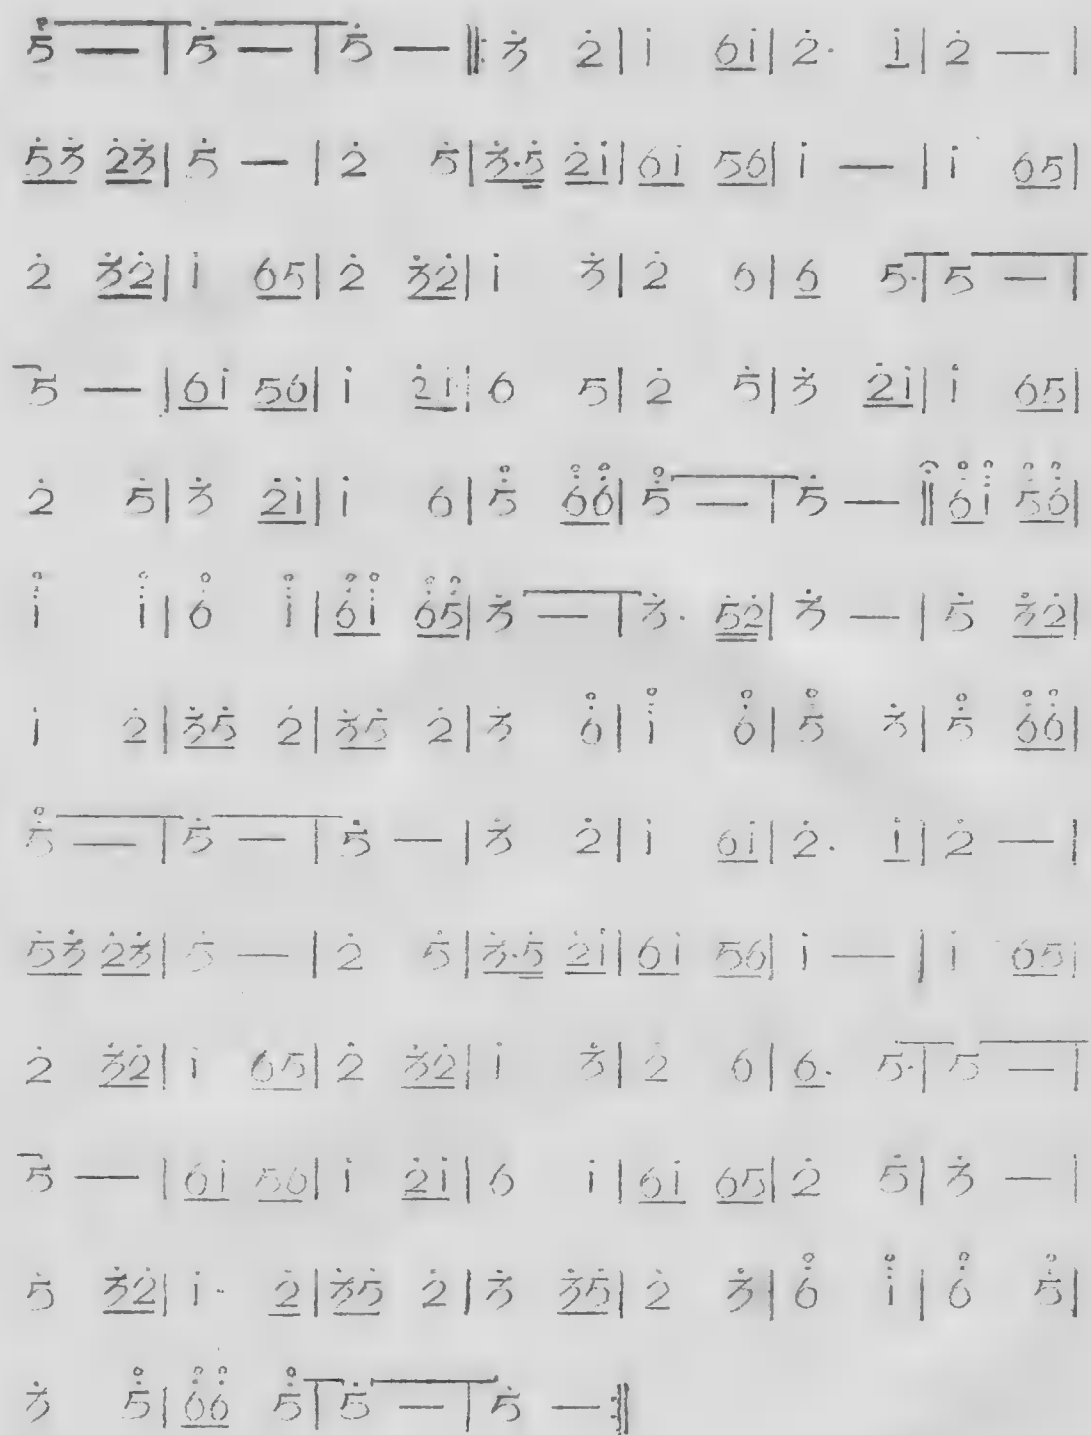 5̇ — | 5̇ — | 5̇ — ‖: 3̇ 2̇ | i 6i | 2̇· i | 2̇ — |
5̇3̇ 2̇3̇ | 5̇ — | 2̇ 5̇ | 3̇·5̇ 2̇i | 6i 56 | i — | i 65 |
2̇ 3̇2̇ | i 65 | 2̇ 3̇2̇ | i 3̇ | 2̇ 6 | 6 5· | 5 — |
5 — | 6i 56 | i 2̇i | 6 5 | 2̇ 5̇ | 3̇ 2̇i | i 65 |
2̇ 5̇ | 3̇ 2̇i | i 6 | 5̇ 6̇6̇ | 5̇ — | 5̇ — ‖ 6̇i 5̇6̇ |
i i | 6̇ i | 6̇i 6̇5̇ | 3̇ — | 3̇· 5̇2̇ | 3̇ — | 5̇ 3̇2̇ |
i 2̇ | 3̇5̇ 2̇ | 3̇5̇ 2̇ | 3̇ 6̇ | i 6̇ | 5̇ 3̇ | 5̇ 6̇6̇ |
5̇ — | 5̇ — | 5̇ — | 3̇ 2̇ | i 6i | 2̇· i | 2̇ — |
5̇3̇ 2̇3̇ | 5̇ — | 2̇ 5̇ | 3̇·5̇ 2̇i | 6i 56 | i — | i 65 |
2̇ 3̇2̇ | i 65 | 2̇ 3̇2̇ | i 3̇ | 2̇ 6 | 6· 5· | 5 — |
5 — | 6i 56 | i 2̇i | 6 i | 6i 65 | 2̇ 5̇ | 3̇ — |
5̇ 3̇2̇ | i· 2̇ | 3̇5̇ 2̇ | 3̇ 3̇5̇ | 2̇ 3̇ | 6̇ i | 6̇ 5̇ |
3̇ 5̇ | 6̇6̇ 5̇ | 5̇ — | 5̇ — :‖